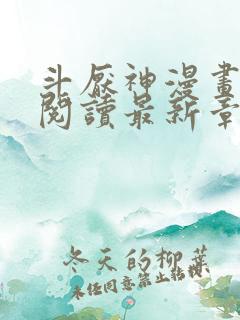 斗厭神漫畫
閱讀最新章
冬天的柳葉
未經同意禁止轉載